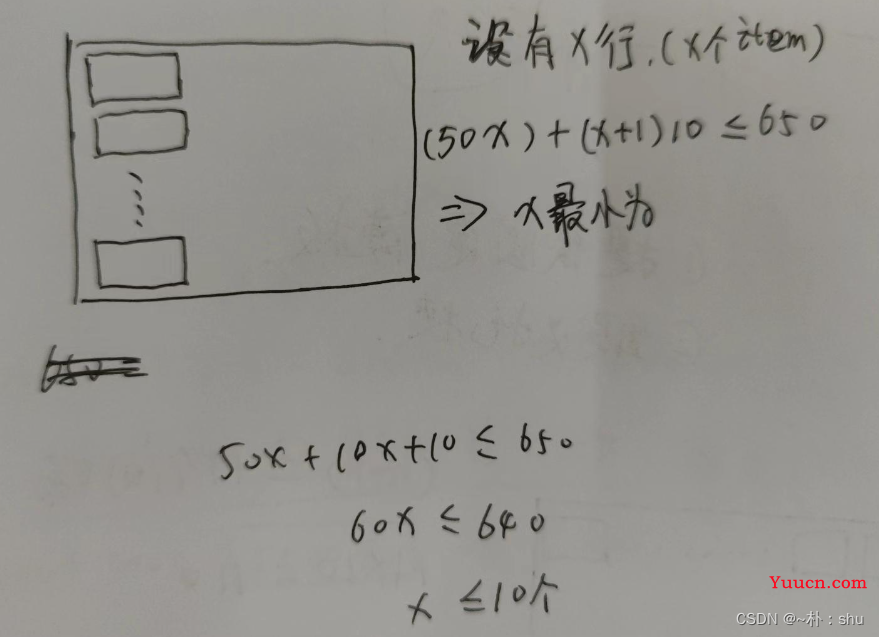 设有x行.(x个item)
(50x)+(x+1)10≤650
⇒ x最小为
50x+10x+10≤650
60x≤640
x≤10个
Yuucn.com
CSDN @~朴：shu